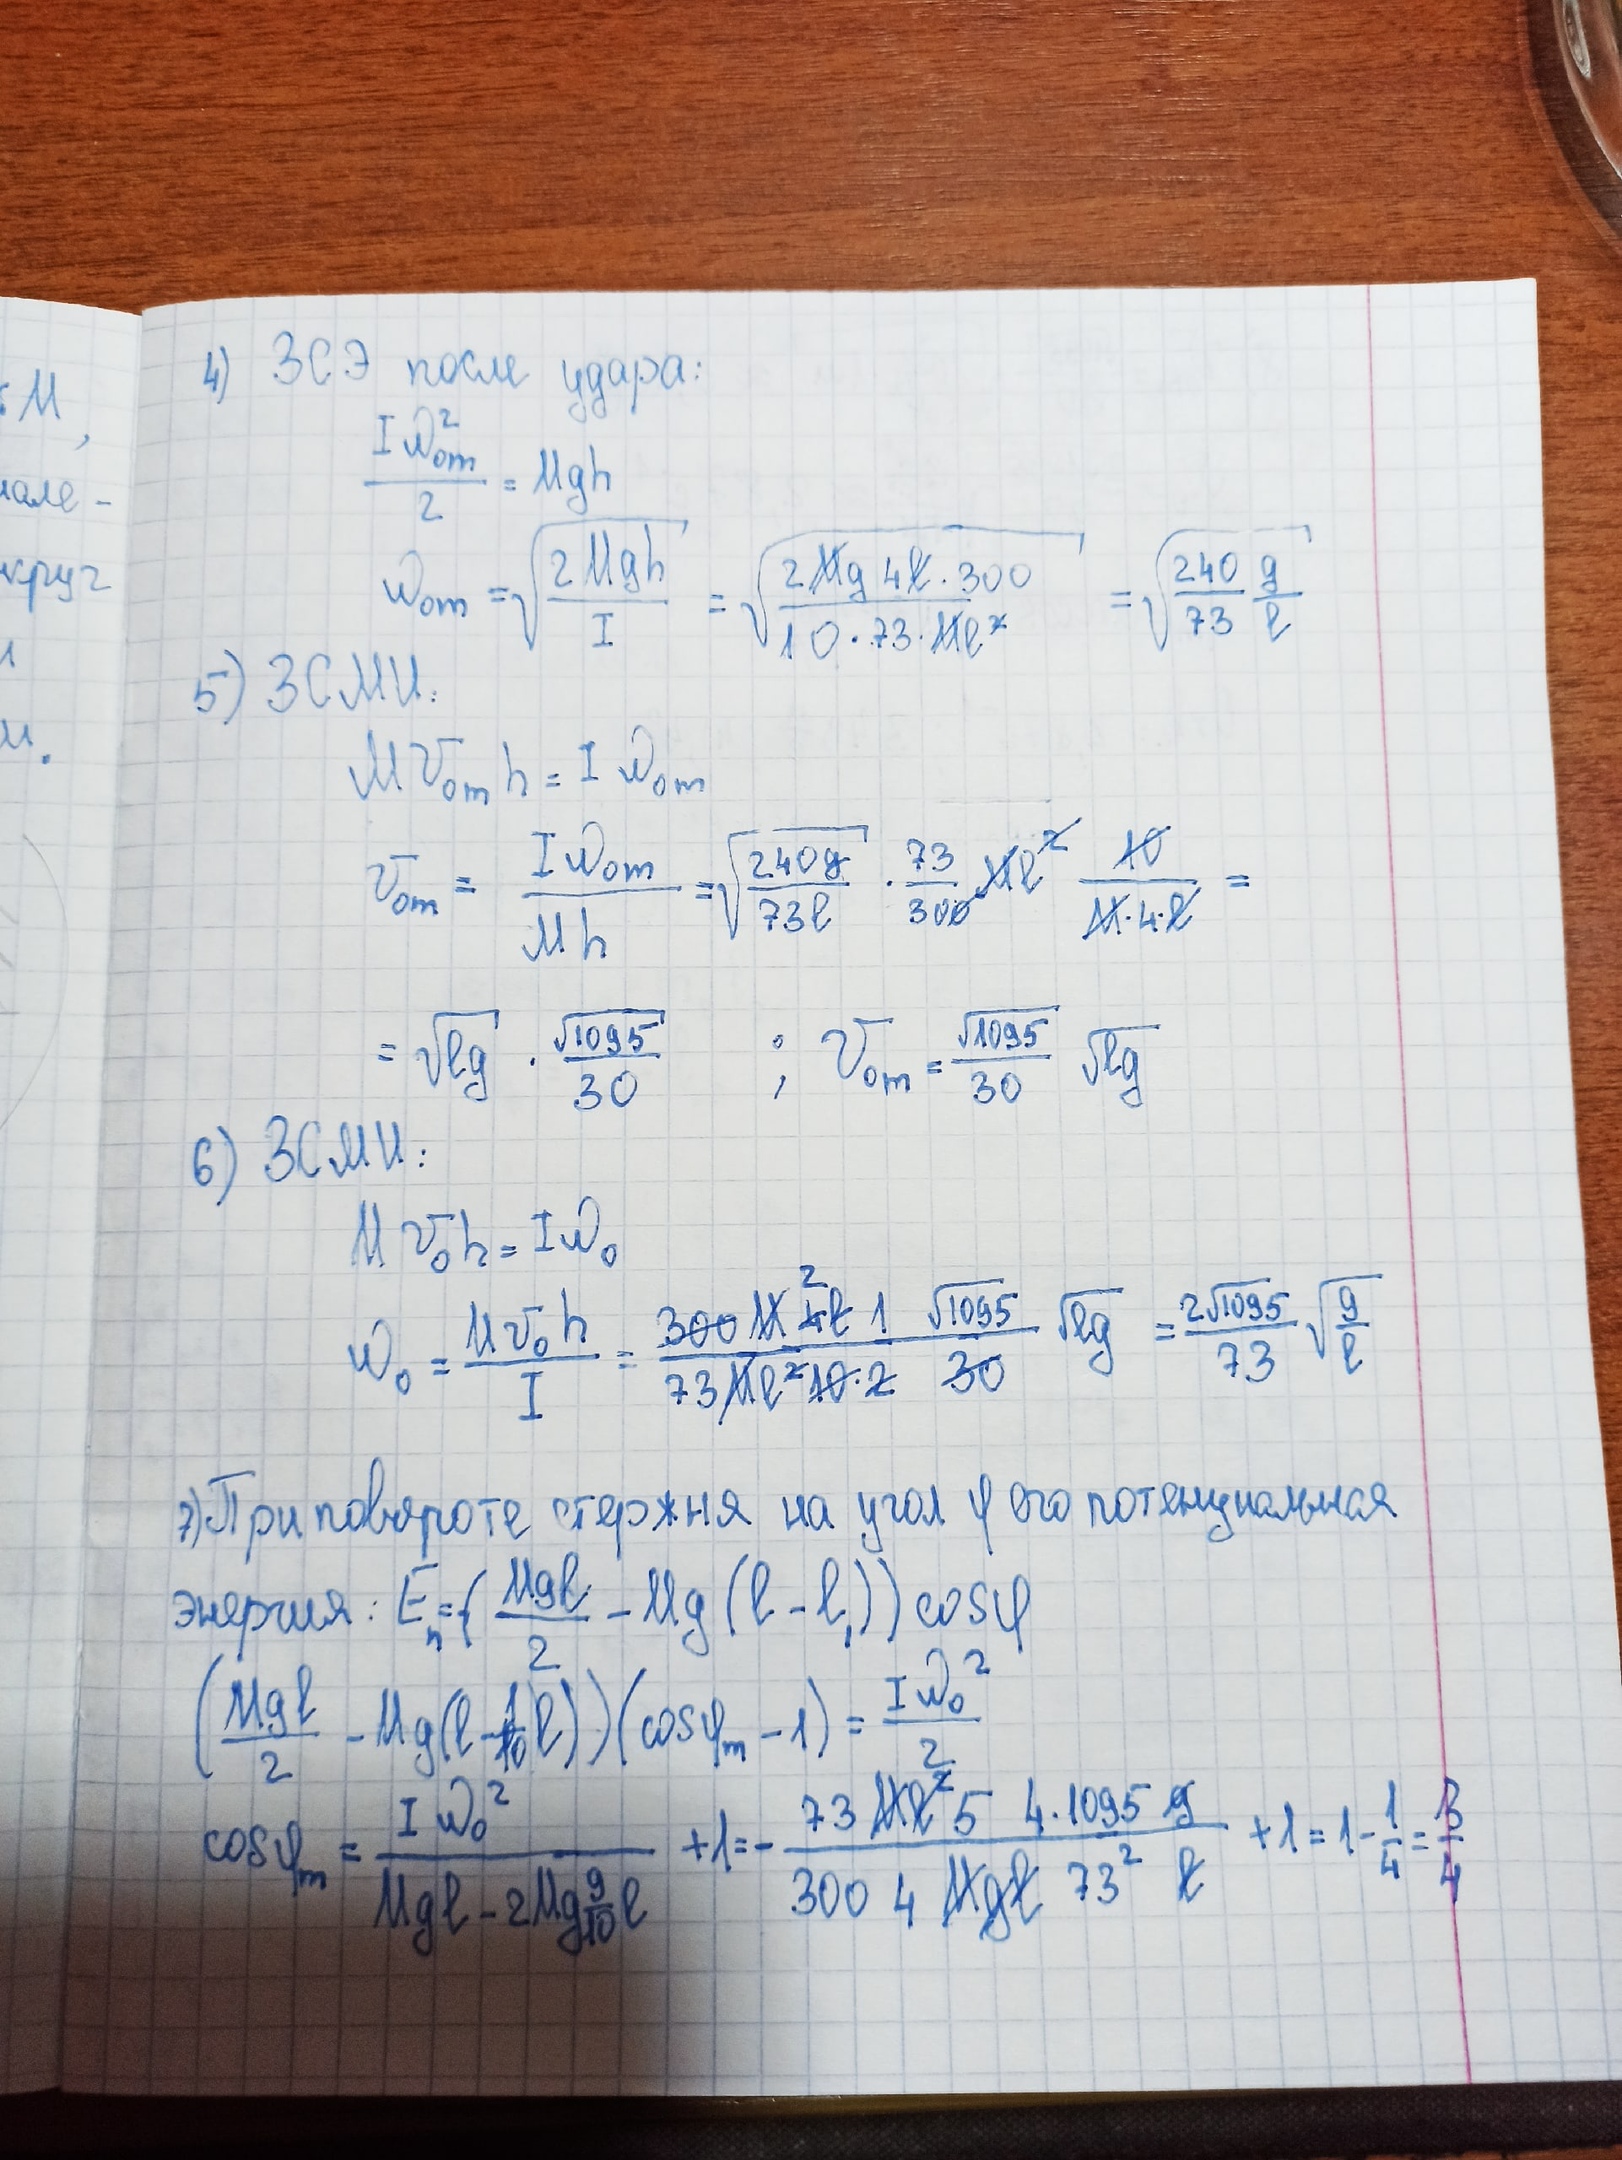 М,
мале-
круг
4) ЗСЭ после удара:
Iω₀ₘ²/2 = Mgh
ω₀ₘ = √(2Mgh/I) = √(2Mg4l·300/10·73·Ml²) = √(240/73 g/l)
5) ЗСМИ:
Mv₀ₘh = Iω₀ₘ
v₀ₘ = Iω₀ₘ/Mh = √(240g/73l) · 73/300 Ml² 10/M·4·l =
= √lg · √1095/30 ; v₀ₘ = √1095/30 √lg
6) ЗСМИ:
Mv₀h = Iω₀
ω₀ = Mv₀h/I = 300M4l 1 √1095/73Ml²10·2 30 √lg = 2√1095/73 √(g/l)
7) При повороте стержня на угол φ его потенциальная
энергия: Eₙ = (Mgl/2 - Mg(l-l₁))cosφ
(Mgl/2 - Mg(l-1/10 l))(cosφₘ - 1) = Iω₀²/2
cosφₘ = Iω₀²/Mgl-2Mg9/10l +1 = - 73Ml²5 4·1095g/300 4 Mgl 73² l +1 = 1-1/4 = 3/4